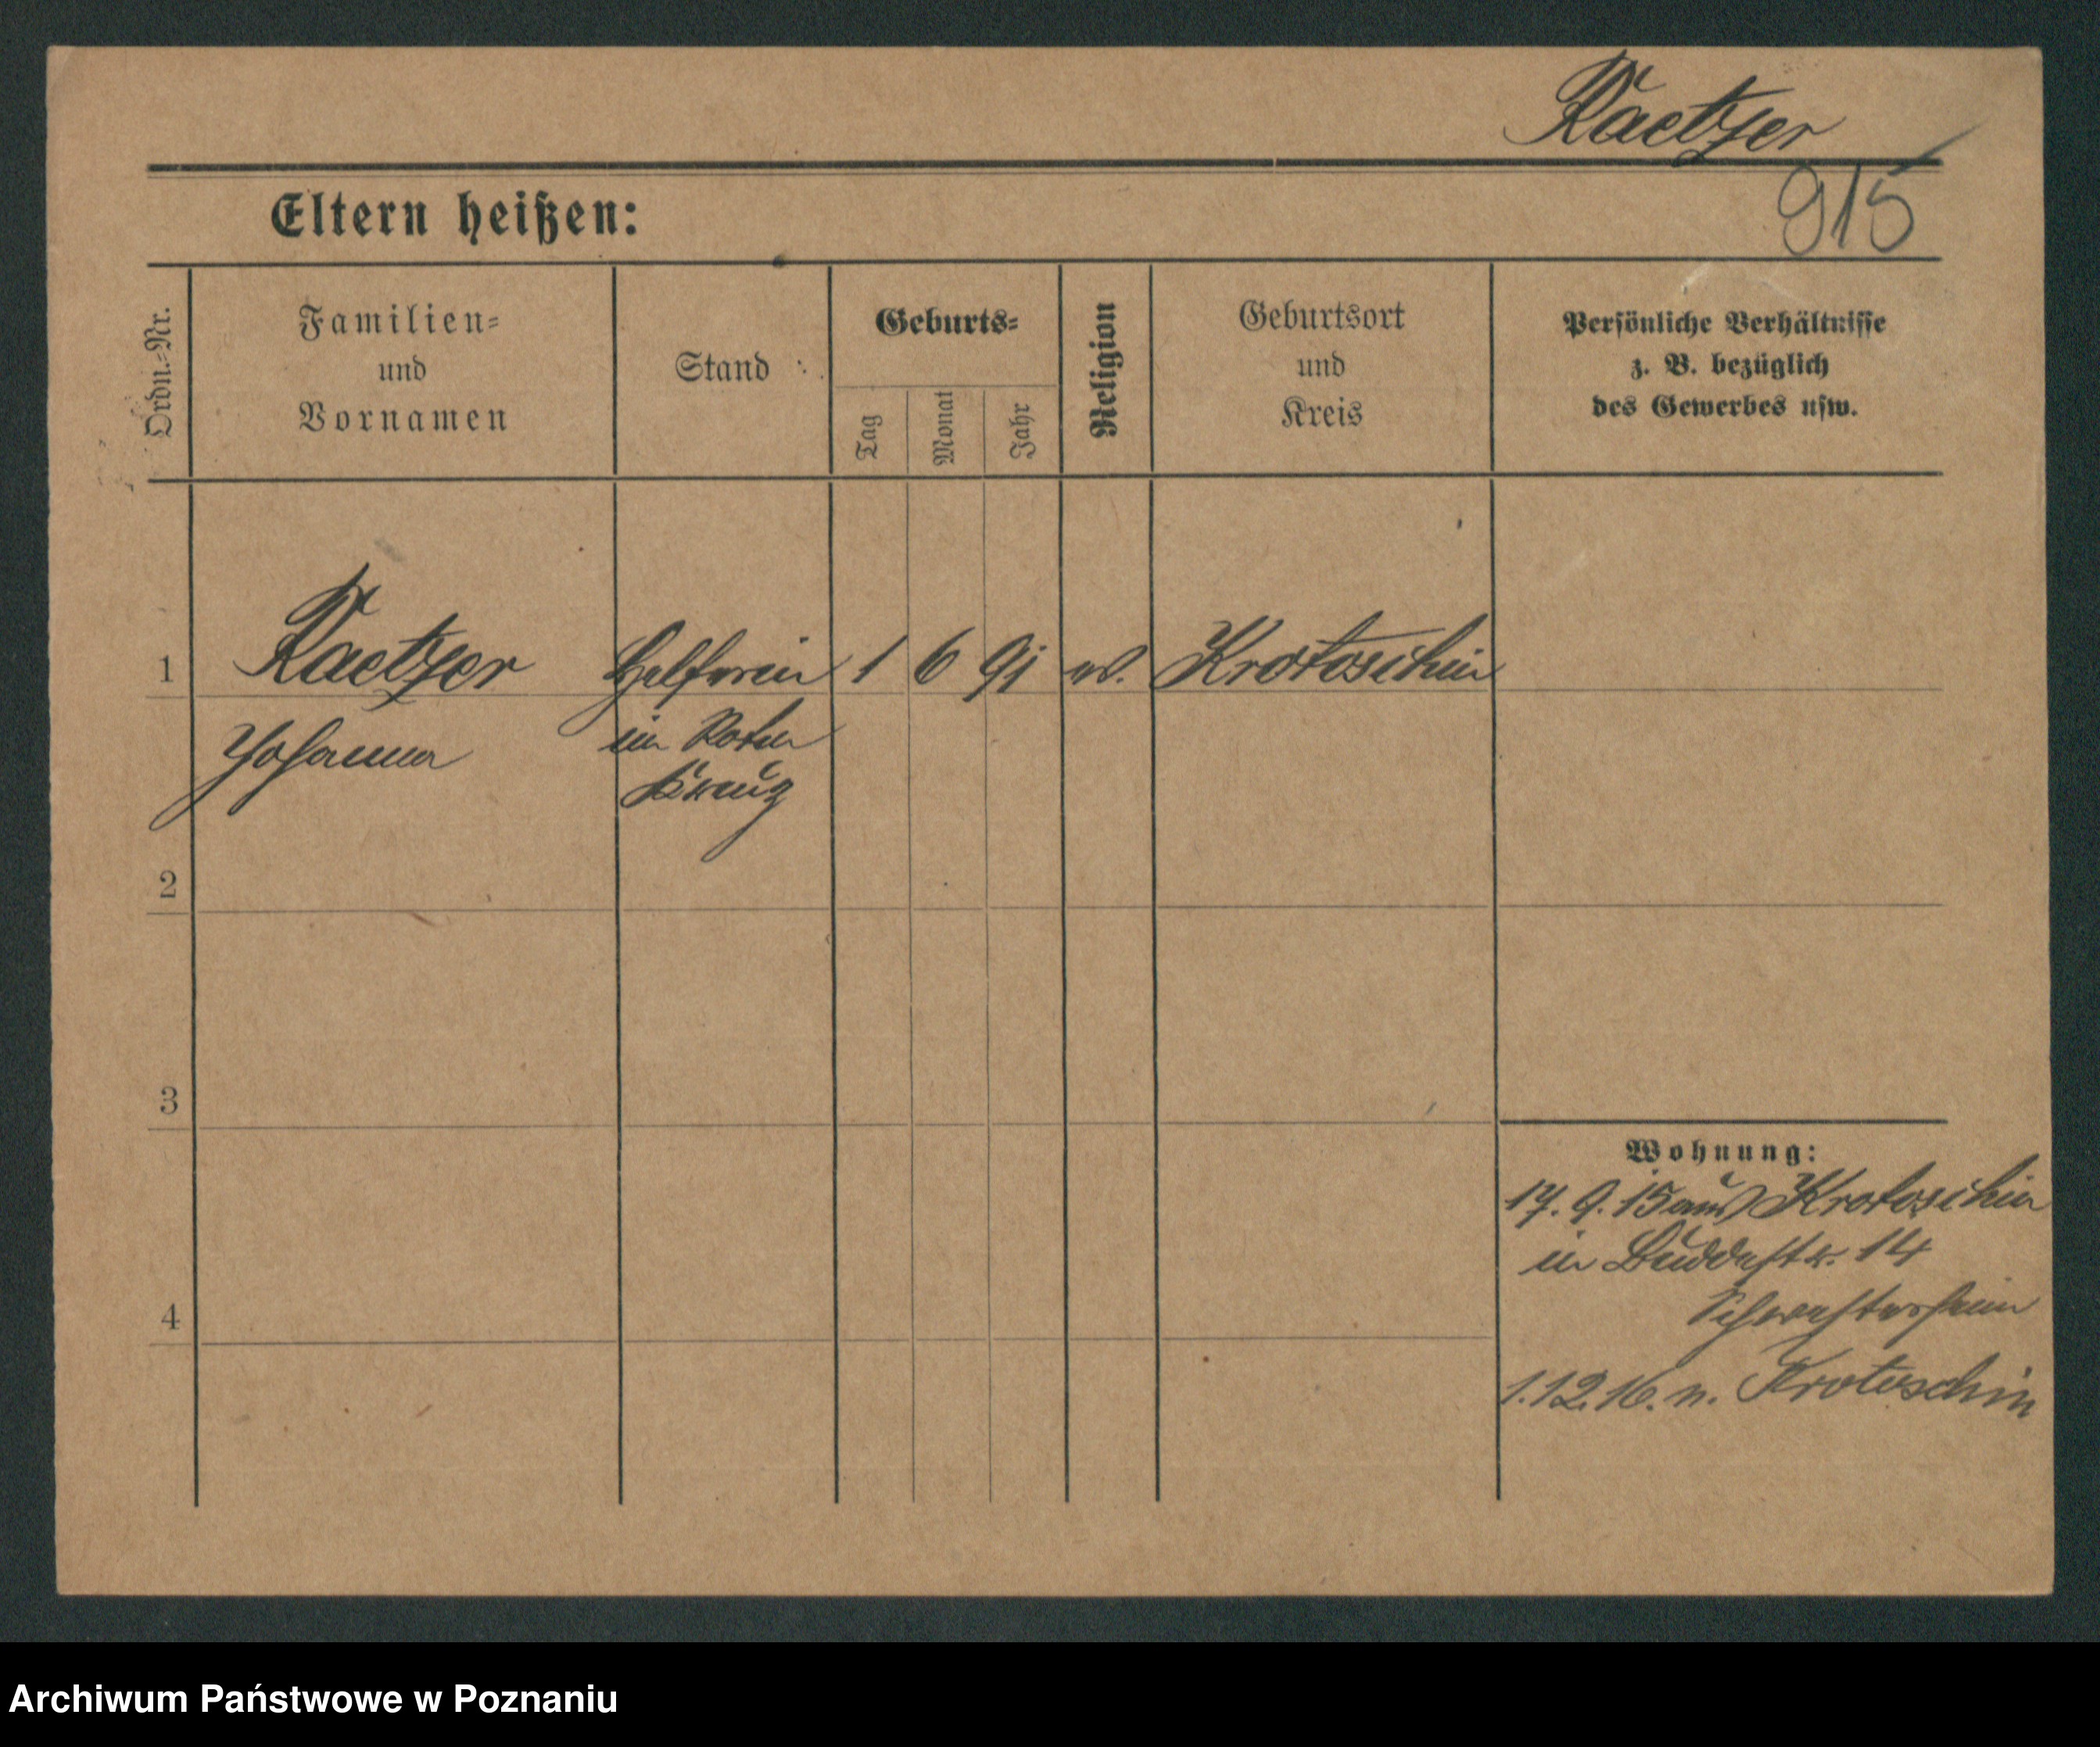 Raetzer
915
Eltern heißen:
Ordn.-Nr.
Familien-
und
Vornamen
Stand
Geburts-
Tag
Monat
Jahr
Religion
Geburtsort
und
Kreis
Persönliche Verhältnisse
z. B. bezüglich
des Gewerbes usw.
1 Raetzer Helferin 1 6 91 ev. Krotoschin
Johanna im Roten
Kreuz
2
3
4
Wohnung:
17. 9. 15 aus Krotoschin
in Buddestr. 14
Schwesternheim
1.12.16. n. Krotoschin
Archiwum Państwowe w Poznaniu